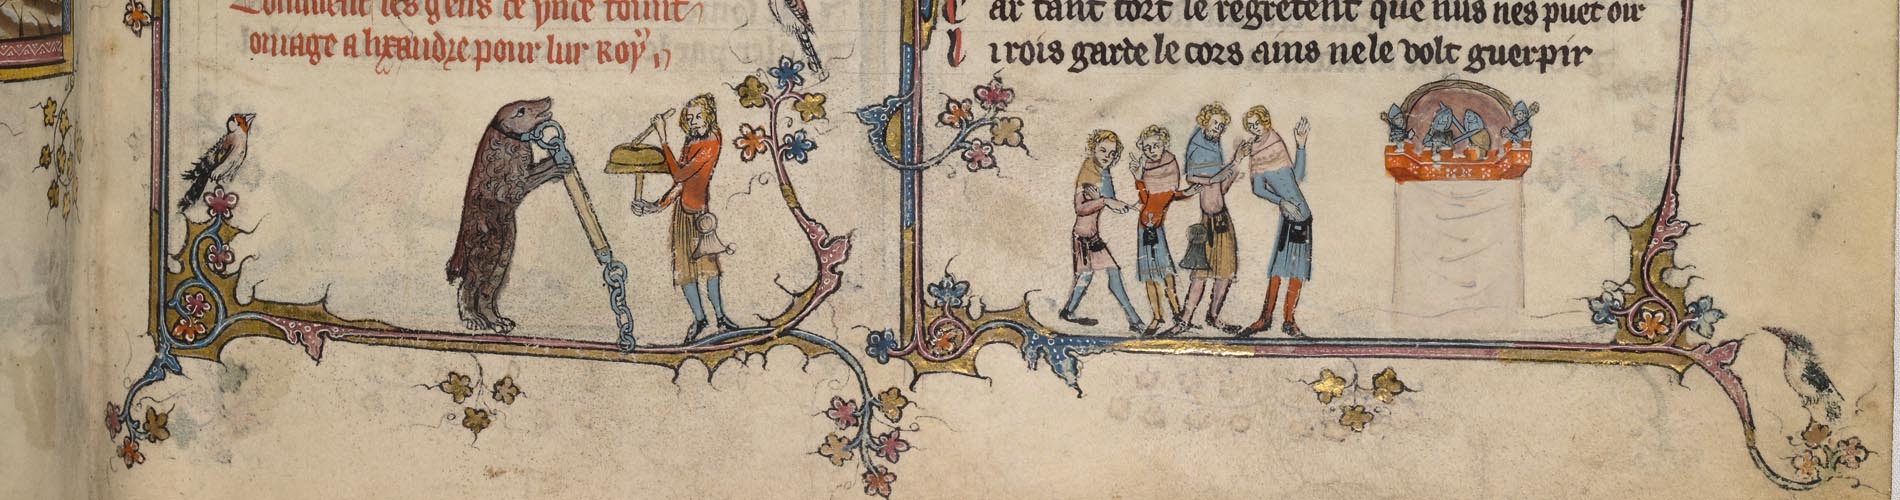 Comment les gens de ynde fount
omage a lixandre pour lur Roy
Car tant fort le regretent que nus nes puet oir
Li rois garde le cors ains ne le volt guerpir